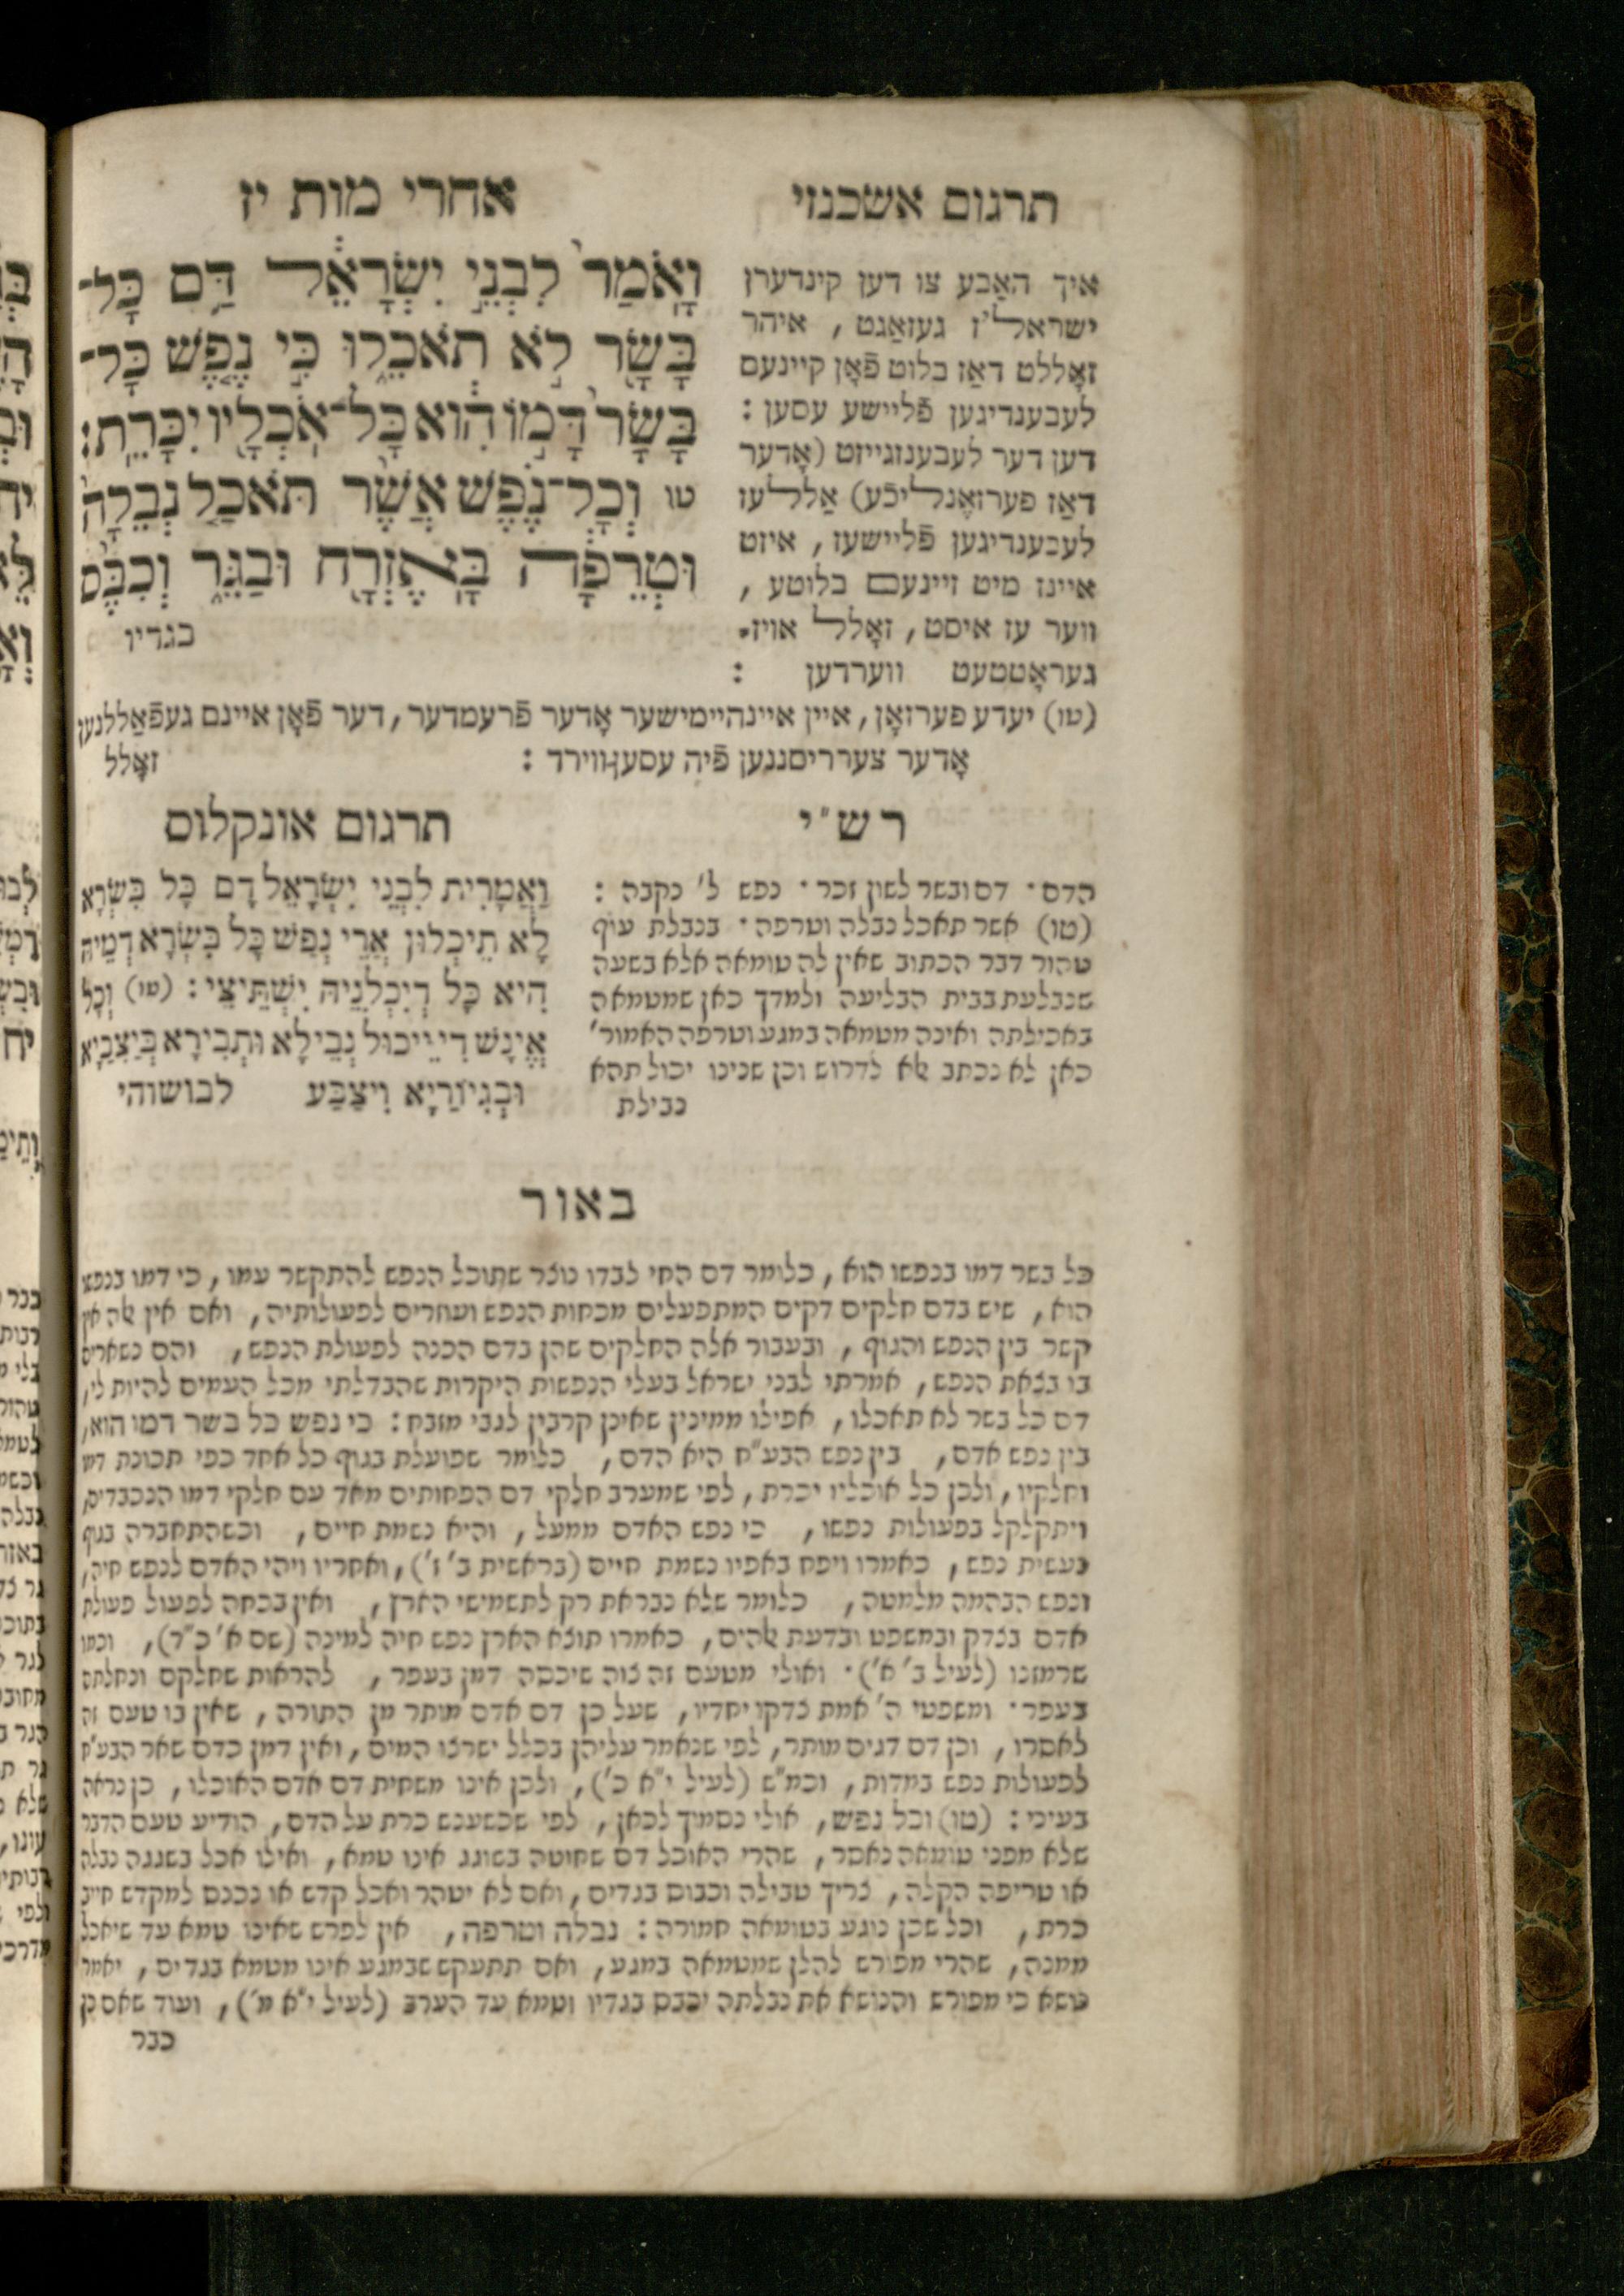 תרגום אשכנזי
אחרי מות יז
וָאֹמַר֙ לִבְנֵ֣י יִשְׂרָאֵ֔ל דַּ֥ם כָּל־
בָּשָׂ֖ר לֹ֣א תֹאכֵ֑לוּ כִּ֣י נֶ֤פֶשׁ כָּל־
בָּשָׂר֙ דָּמ֣וֹ הִ֔וא כָּל־אֹכְלָ֖יו יִכָּרֵֽת׃
טו וְכָל־נֶ֗פֶשׁ אֲשֶׁ֨ר תֹּאכַ֤ל נְבֵלָה֙
וּטְרֵפָ֔ה בָּאֶזְרָ֖ח וּבַגֵּ֑ר וְכִבֶּ֨ס
בגדיו
איך האַבע צו דען קינדערן
ישראל'ז געזאַגט, איהר
זאָללט דאַז בלוט פֿאָן קיינעם
לעבענדיגען פֿליישע עסען:
דען דער לעבענזגייזט (אָדער
דאַז פערזאָנליכֿע) אַללעז
לעבענדיגען פֿליישעז, איזט
איינז מיט זיינעם בלוטע,
ווער עז איסט, זאָלל אויז־
געראָטטעט ווערדען:
(טו) יעדע פערזאָן, איין איינהיימישער אָדער פֿרעמדער, דער פֿאָן איינם געפֿאַללנען
אָדער צעררייסנען פֿיה עסען ווירד:
זאָלל
רש"י
הדם· דם ובשר לשון זכר· נפש ל' נקבה:
(טו) אשר תאכל נבלה וטרפה· בנבלת עוף
טהור דבר הכתוב שאין לה טומאה אלא בשעה
שנבלעת בבית הבליעה ולמדך כאן שמטמאה
באכילתה ואינה מטמאה במגע וטרפה האמור'
כאן לא נכתב אלא לדרוש וכן שנינו יכול תהא
נבילת
תרגום אונקלוס
וַאֲמָרִית לִבְנֵי יִשְׂרָאֵל דָם כָּל בִּשְׂרָא
לָא תֵיכְלוּן אֲרֵי נְפַשׁ כָּל בִּשְׂרָא דְמֵיהּ
הִיא כָּל דְיֵכְלִנֵיהּ יִשְׁתֵּיצֵי: (טו) וְכָל
אֱינָשׁ דִי יֵיכוּל נְבֵילָא וּתְבִירָא בְּיַצִיבַיָא
וּבְגִיוֹרַיָא וִיצַבַּע
לבושוהי
באור
כל בשר דמו בנפשו הוא, כלומר דם החי לבדו נוצר שתוכל הנפש להתקשר עמו, כי דמו בנפש
הוא, שיש בדם חלקים דקים המתפעלים מכחות הנפש ועוזרים לפעולותיה, ואם אין אלה אין
קשר בין הנפש והגוף, ובעבור אלה החלקים שהן בדם הכנה לפעולת הנפש, והם נשארים
בו בצאת הנפש, אמרתי לבני ישראל בעלי הנפשות היקרות שהבדלתי מכל העמים להיות לי,
דם כל בשר לא תאכלו, אפילו ממינין שאינן קרבין לגבי מזבח: כי נפש כל בשר דמו הוא,
בין נפש אדם, בין נפש הבע"ח היא הדם, כלומר שפועלת בגוף כל אחד כפי תכונת דמו
וחלקיו, ולכן כל אוכליו יכרת, לפי שמערב חלקי דם הפחותים מאד עם חלקי דמו הנכבדים,
ויתקלקל בפעולות נפשו, כי נפש האדם ממעל, והיא נשמת חיים, וכשהתחברה בגוף
נעשית נפש, כאמרו ויפח באפיו נשמת חיים (בראשית ב' ז'), ואחריו ויהי האדם לנפש חיה,
ונפש הבהמה מלמטה, כלומר שלא נבראת רק לתשמישי הארץ, ואין בכחה לפעול פעולת
אדם בצדק ובמשפט ובדעת אלהים, כאמרו תוצא הארץ נפש חיה למינה (שם א' כ"ד), וכמו
שרמזנו (לעיל ב' א')· ואולי מטעם זה צוה שיכסה דמן בעפר, להראות שחלקם ונחלתם
בעפר· ומשפטי ה' אמת צדקו יחדיו, שעל כן דם אדם מותר מן התורה, שאין בו טעם זה
לאסרו, וכן דם דגים מותר, לפי שנאמר עליהן בכלל ישרצו המים, ואין דמן כדם שאר הבע"ח
לפעולות נפש במדות, וכמ"ש (לעיל י"א כ'), ולכן אינו משחית דם אדם האוכלו, כן נראה
בעיני: (טו) וכל נפש, אולי נסמיך לכאן, לפי שכשענש כרת על הדם, הודיע טעם הדבר
שלא מפני טומאה נאסר, שהרי האוכל דם שחוטה בשוגג אינו טמא, ואילו אכל בשגגה נבלה
או טריפה הקלה, צריך טבילה וכבוס בגדים, ואם לא יטהר ואכל קדש או נכנס למקדש חייב
כרת, וכל שכן נוגע בטומאה חמורה: נבלה וטרפה, אין לפרש שאינו טמא עד שיאכל
ממנה, שהרי מפורש להלן שמטמאה במגע, ואם תתעקש שבמגע אינו מטמא בגדים, יאמר
נושא כי מפורש והנושא את נבלתה יכבס בגדיו וטמא עד הערב (לעיל י"א מ'), ועוד שאם כן
כבר